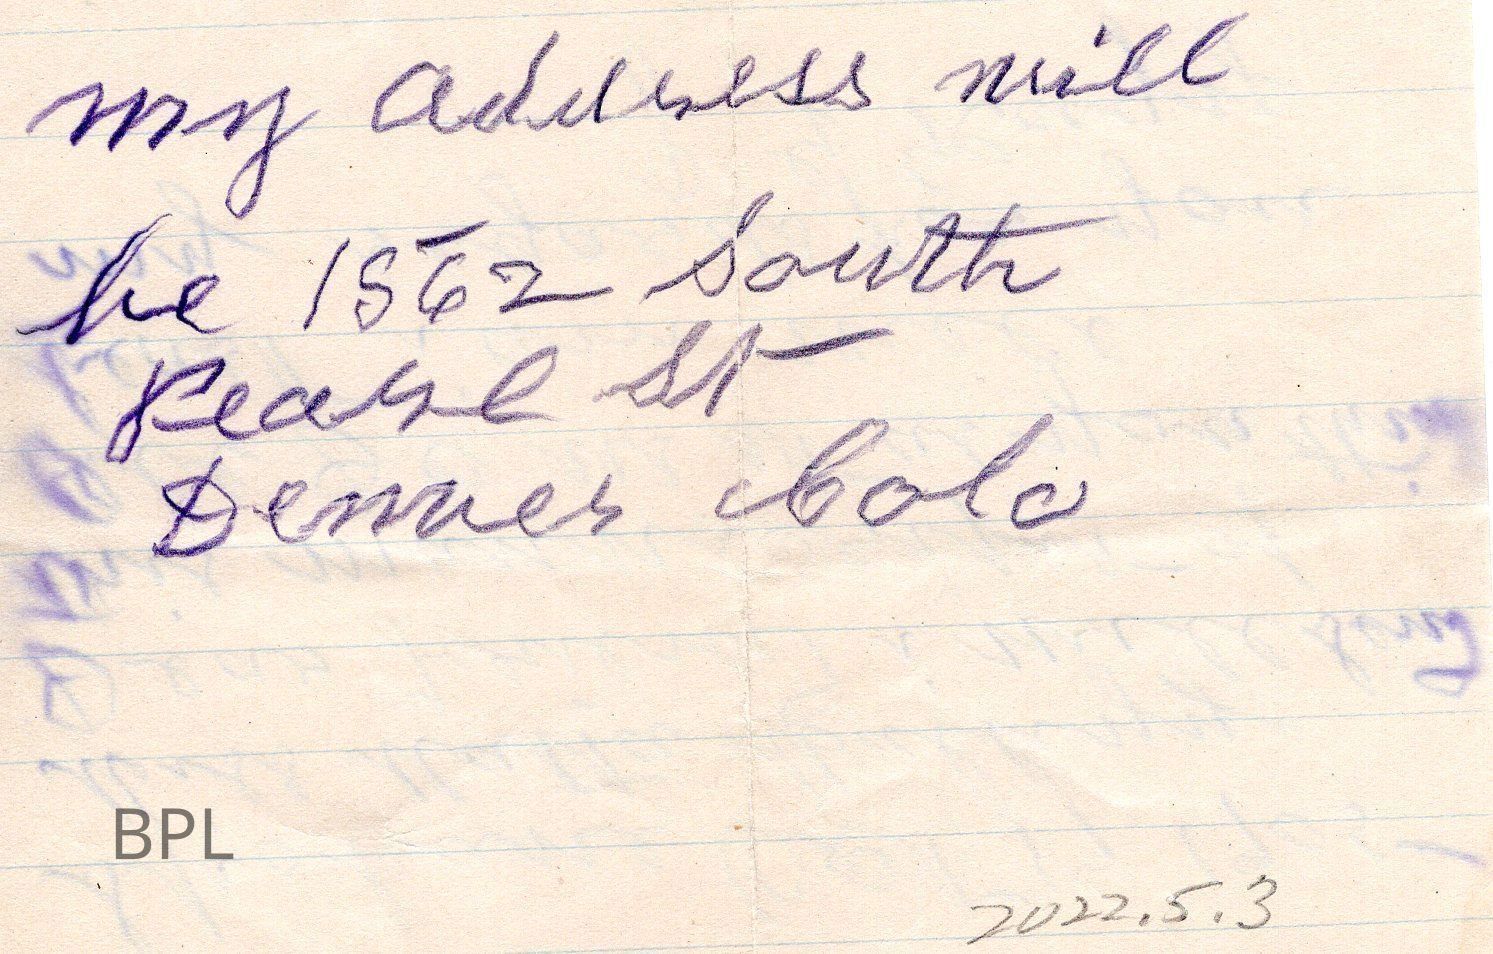 my address will
be 1562 South
Pearl St
Denver Colo
BPL
2022.5.3